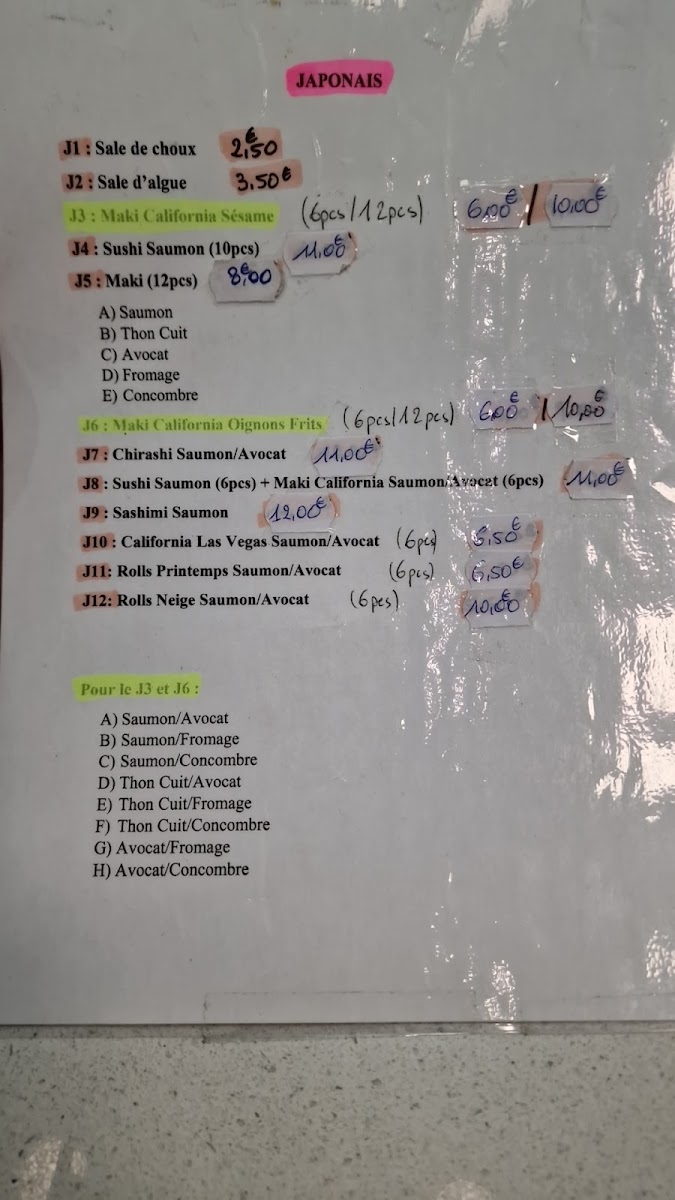 JAPONAIS
J1 : Sale de choux 2,50€
J2 : Sale d'algue 3,50€
J3 : Maki California Sésame (6pcs/12pcs) 6,00€ / 10,00€
J4 : Sushi Saumon (10pcs) 11,00€
J5 : Maki (12pcs) 8,00€
A) Saumon
B) Thon Cuit
C) Avocat
D) Fromage
E) Concombre
J6 : Maki California Oignons Frits (6pcs/12pcs) 6,00€ / 10,00€
J7 : Chirashi Saumon/Avocat 11,00€
J8 : Sushi Saumon (6pcs) + Maki California Saumon/Avocat (6pcs) 11,00€
J9 : Sashimi Saumon 12,00€
J10 : California Las Vegas Saumon/Avocat (6pcs) 6,50€
J11: Rolls Printemps Saumon/Avocat (6pcs) 6,50€
J12: Rolls Neige Saumon/Avocat (6pcs) 10,00
Pour le J3 et J6 :
A) Saumon/Avocat
B) Saumon/Fromage
C) Saumon/Concombre
D) Thon Cuit/Avocat
E) Thon Cuit/Fromage
F) Thon Cuit/Concombre
G) Avocat/Fromage
H) Avocat/Concombre